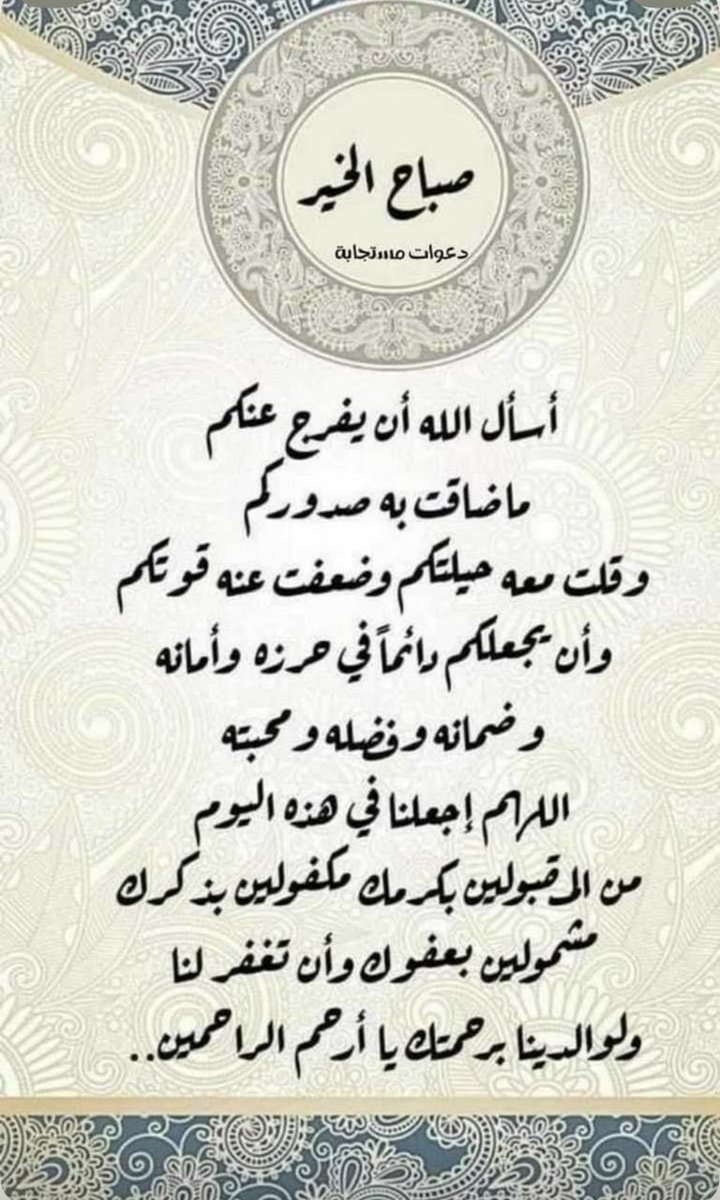 صباح الخير
دعوات مستجابة
أسأل الله أن يفرج عنكم
ماضاقت به صدوركم
وقلت معه حيلتكم وضعفت عنه قوتكم
وأن يجعلكم دائماً في حرزه وأمانه
وضمانه وفضله ومحبته
اللهم إجعلنا في هذه اليوم
من المقبولين بكرمك مكفولين بذكرك
مشمولين بعفوك وأن تغفر لنا
ولوالدينا برحمتك يا أرحم الراحمين..